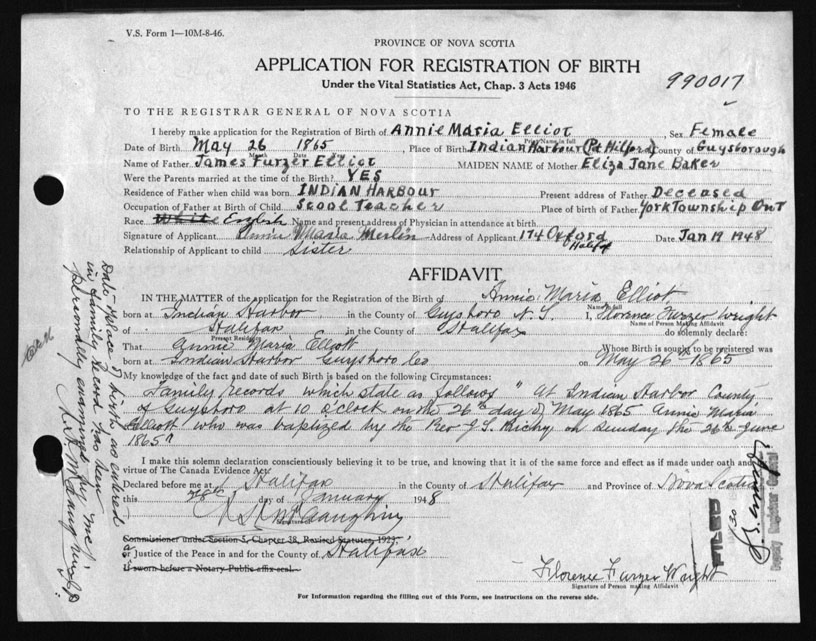 V.S. Form 1—10M-8-46.
PROVINCE OF NOVA SCOTIA
APPLICATION FOR REGISTRATION OF BIRTH
Under the Vital Statistics Act, Chap. 3 Acts 1946
990017
TO THE REGISTRAR GENERAL OF NOVA SCOTIA
I hereby make application for the Registration of Birth of Annie Maria Elliot, Sex Female
Print Name in full
Date of Birth May 26 1865, Place of Birth Indian Harbour (Pt Hilford) County of Guysborough
Month Date Year
Name of Father James Furzer Elliot MAIDEN NAME of Mother Eliza Jane Baker
Were the Parents married at the time of Birth? YES
Residence of Father when child was born INDIAN HARBOUR Present address of Father Deceased
Occupation of Father at Birth of Child Scool Teacher Place of birth of Father York Township Ont
Race White English Name and present address of Physician in attendance at birth
Signature of Applicant Annie Maria Merlin Address of Applicant 174 Oxford Halifx Date Jan 19 1948
Relationship of Applicant to child Sister
AFFIDAVIT
IN THE MATTER of the application for the Registration of the Birth of Annie Maria Elliot
Name in full
born at Indian Harbor in the County of Guysboro N.S. I, Florence Furzer Wright
Name of Person Making Affidavit
of Halifax in the County of Halifax do solemnly declare:
Present Residence
That Annie Maria Elliott Whose Birth is sought to be registered was
born at Indian Harbor Guysboro Co on May 26th 1865
My knowledge of the fact and date of such Birth is based on the following Circumstances:
Family records which state as follows " At Indian Harbor County
of Guysboro at 10 o'clock on the 26th day of May 1865 Annie Maria
Elliott who was baptized by the Rev J.S. Richy on Sunday the 26th June
1865"
I make this solemn declaration conscientiously believing it to be true, and knowing that it is of the same force and effect as if made under oath and
virtue of The Canada Evidence Act
Declared before me at Halifax in the County of Halifax and Province of Nova Scotia
this 28th day of January 1948
Commissioner under Section 5, Chapter 38, Revised Statutes, 1923.
or Justice of the Peace in and for the County of Halifax
If sworn before a Notary Public affix seal.
Florence Furzer Wright
Signature of Person making Affidavit
For Information regarding the filling out of this Form, see instructions on the reverse side.
Date & Place of birth as entered
in family record has been
personally examined by me
FILED
Deputy Registrar General